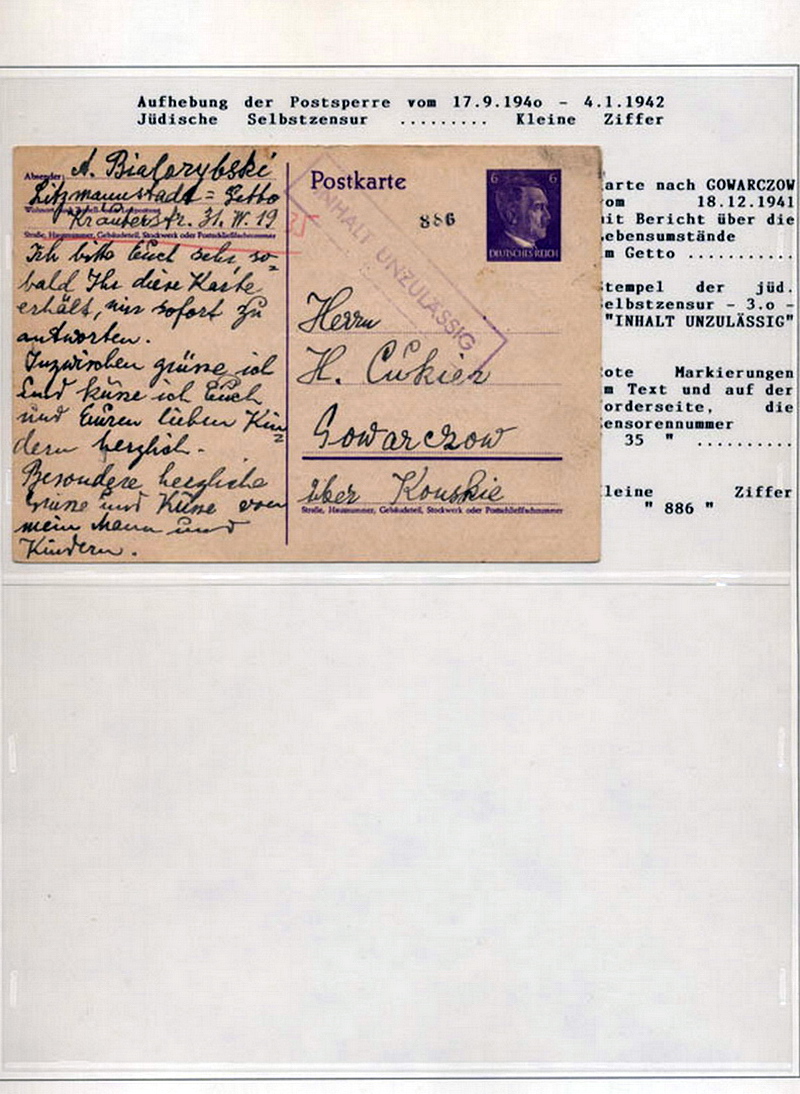 Aufhebung der Postsperre vom 17.9.194o - 4.1.1942
Jüdische Selbstzensur ......... Kleine Ziffer
Absender: A. Bialorybski
Litzmannstadt = Getto
Kräuterstr. 31. W. 19
Straße, Hausnummer, Gebäudeteil, Stockwerk oder Postschließfachnummer
35
Ich bitte Euch sehr so=
bald Ihr diese Karte
erhält, mir sofort zu
antworten.
Inzwischen grüsse ich
und küsse ich Euch
und Euren lieben Kin=
dern herzlich.
Besondere herzliche
Grüsse und Küsse von
mein Mann und
Kindern.
Postkarte
886
6 6
DEUTSCHES REICH
INHALT UNZULÄSSIG
Herrn
H. Cukier
Gowarczow
über Konskie
Straße, Hausnummer, Gebäudeteil, Stockwerk oder Postschließfachnummer
arte nach GOWARCZOW
om 18.12.1941
it Bericht über die
ebensumstände
m Getto ...........
tempel der jüd.
elbstzensur - 3.o -
"INHALT UNZULÄSSIG"
ote Markierungen
m Text und auf der
orderseite, die
ensorennummer
35 " ..........
leine Ziffer
" 886 "